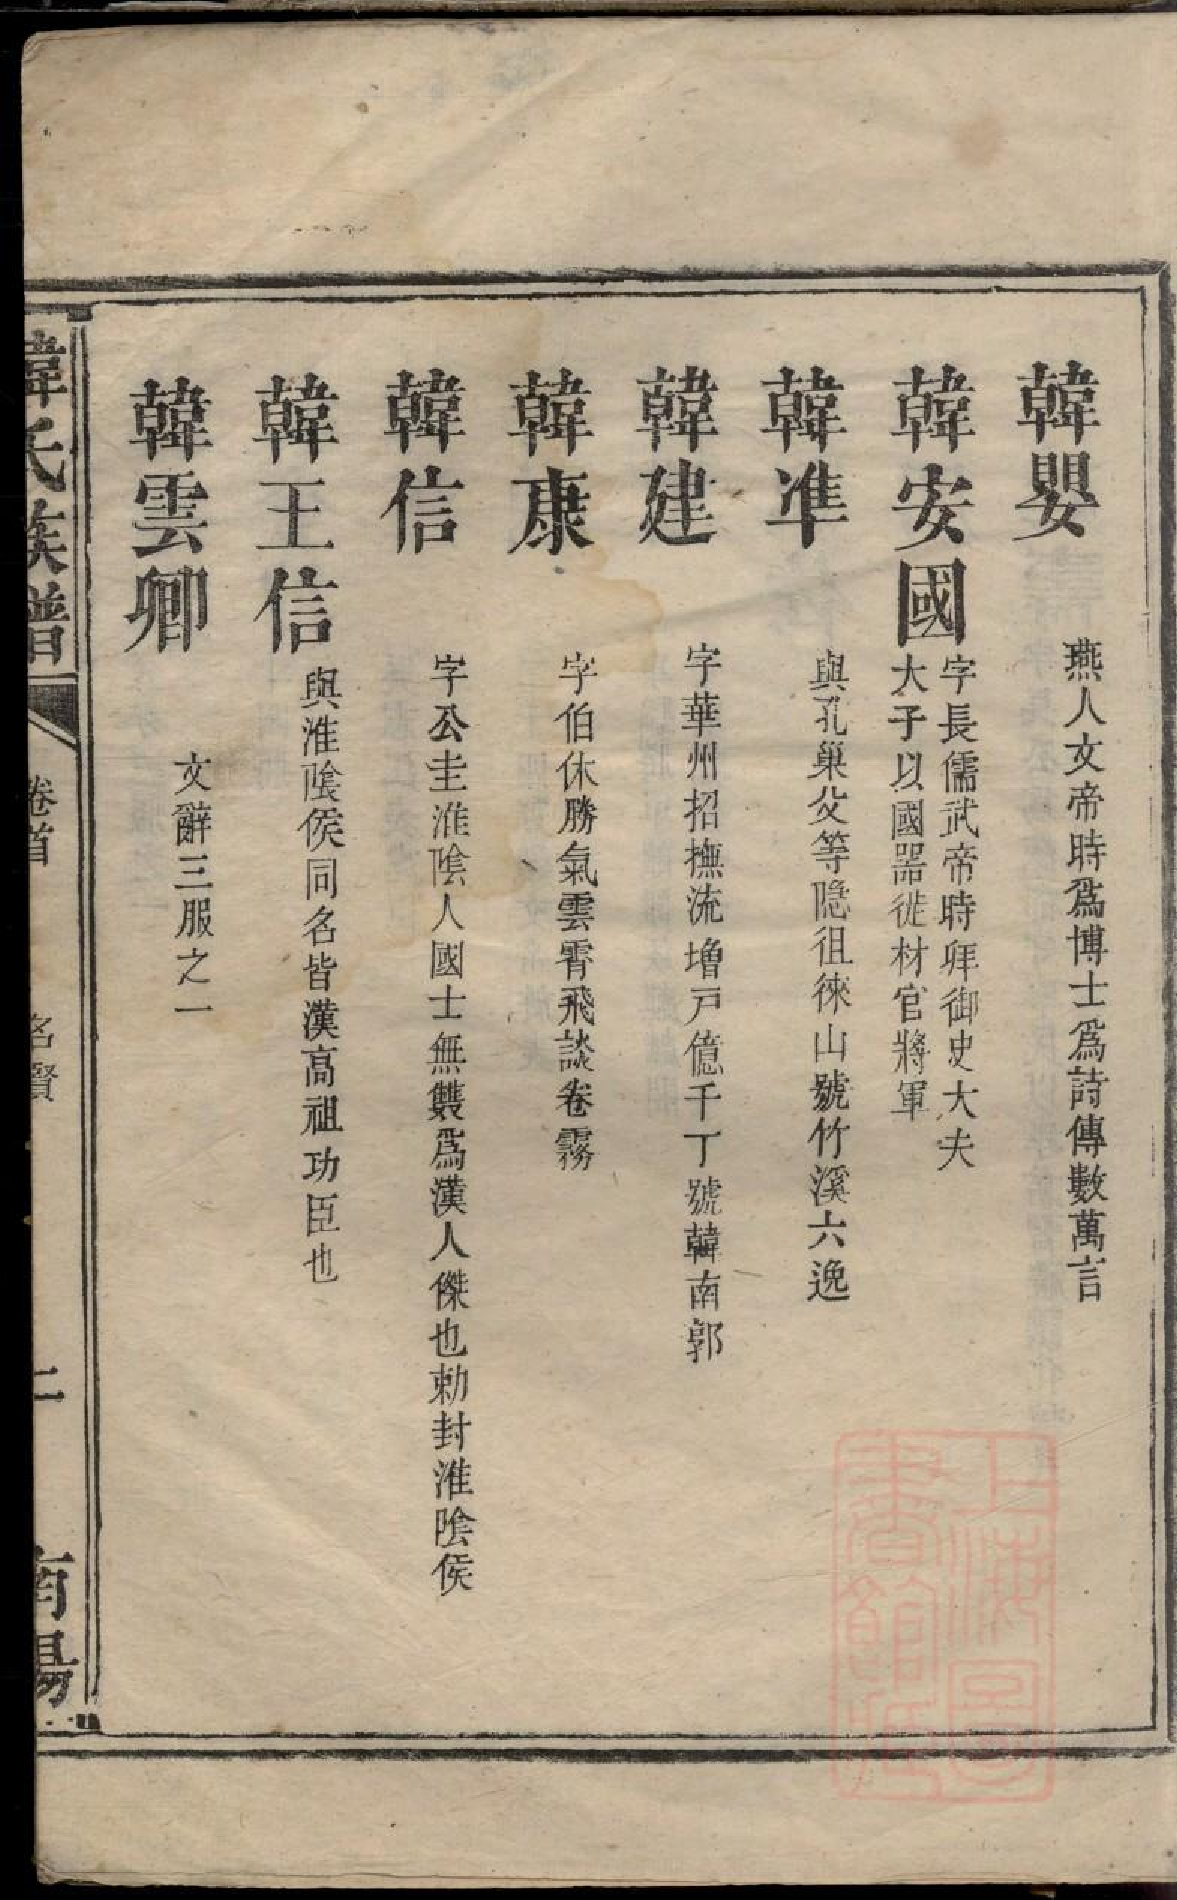 韓嬰 燕人文帝時爲博士爲詩傳數萬言
韓安國 字長儒武帝時拜御史大夫
大子以國器徙材官將軍
韓准 與孔巢父等隱徂徠山號竹溪六逸
韓建 字華州招撫流增戸億千丁號韓南郭
韓康 字伯休勝氣雲霄飛談卷霧
韓信 字公圭淮陰人國士無雙爲漢人傑也勅封淮陰侯
韓王信 與淮陰侯同名皆漢高祖功臣也
韓雲卿 文辭三服之一
韓氏族譜 卷首 名賢 二 南陽
上海圖
書館藏